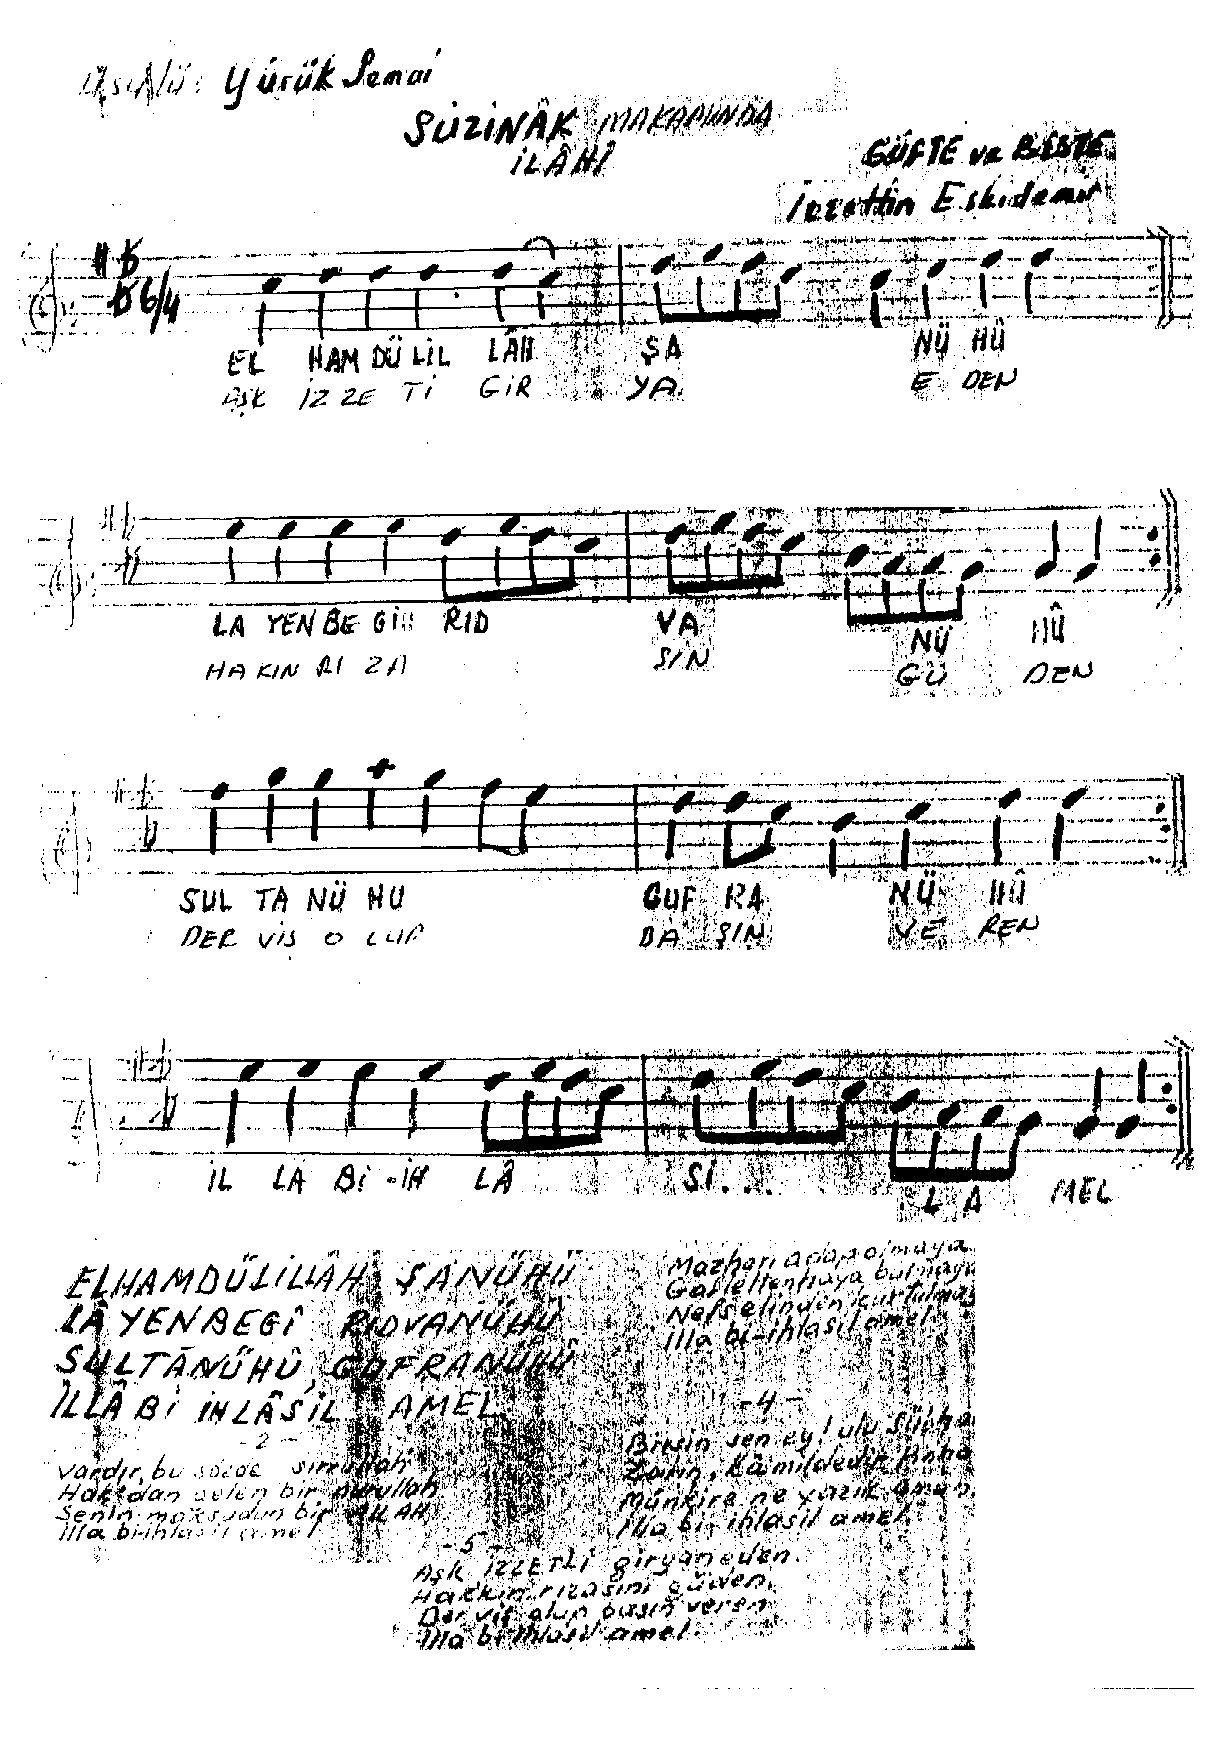 Usulü: Yürük Semai
SÜZİNÂK MAKAMINDA
İLÂHÎ
GÜFTE ve BESTE
İzzettin Eskidemir
6/4
EL HAM DÜ LİL LÂH ŞA NÜ HÛ
AŞK İZ ZE Tİ GİR YA E DEN
LA YEN BE Gİ RID VA NÜ HÛ
HA KIN RI ZA SIN GÜ DEN
SUL TA NÜ HU GUF RA NÜ HÛ
DER VİŞ O LUP BA ŞIN VE REN
İL LA Bİ-İH LÂ Sİ... L A MEL
ELHAMDÜLİLLÂH ŞANÜHÛ
LÂ YENBEGÎ RIDVANÜHÛ
SULTÂNÜHÛ, GUFRANÜHÛ
İLLÂ Bİ İHLÂSİL AMEL
-2-
Vardır, bu sözde sırrullah
Hak'dan gelen bir nurullah
Senin maksudun bir ALLAH
illa bi-ihlasil amel
Mazharı adap olmaya
Gafletten haya bulmaya
Nefs elinden kurtulmaya
illa bi-ihlasil amel
-4-
Birsin sen ey! ulu Sübhan
Zatın, kâmildedir pinha
Münkire ne yazık aman.
illa bi-ihlasil amel.
-5-
Aşk İZZETLİ giryan eden.
Hakkın rızasını güden,
Derviş olup başın veren
illa bi ihlasil amel.